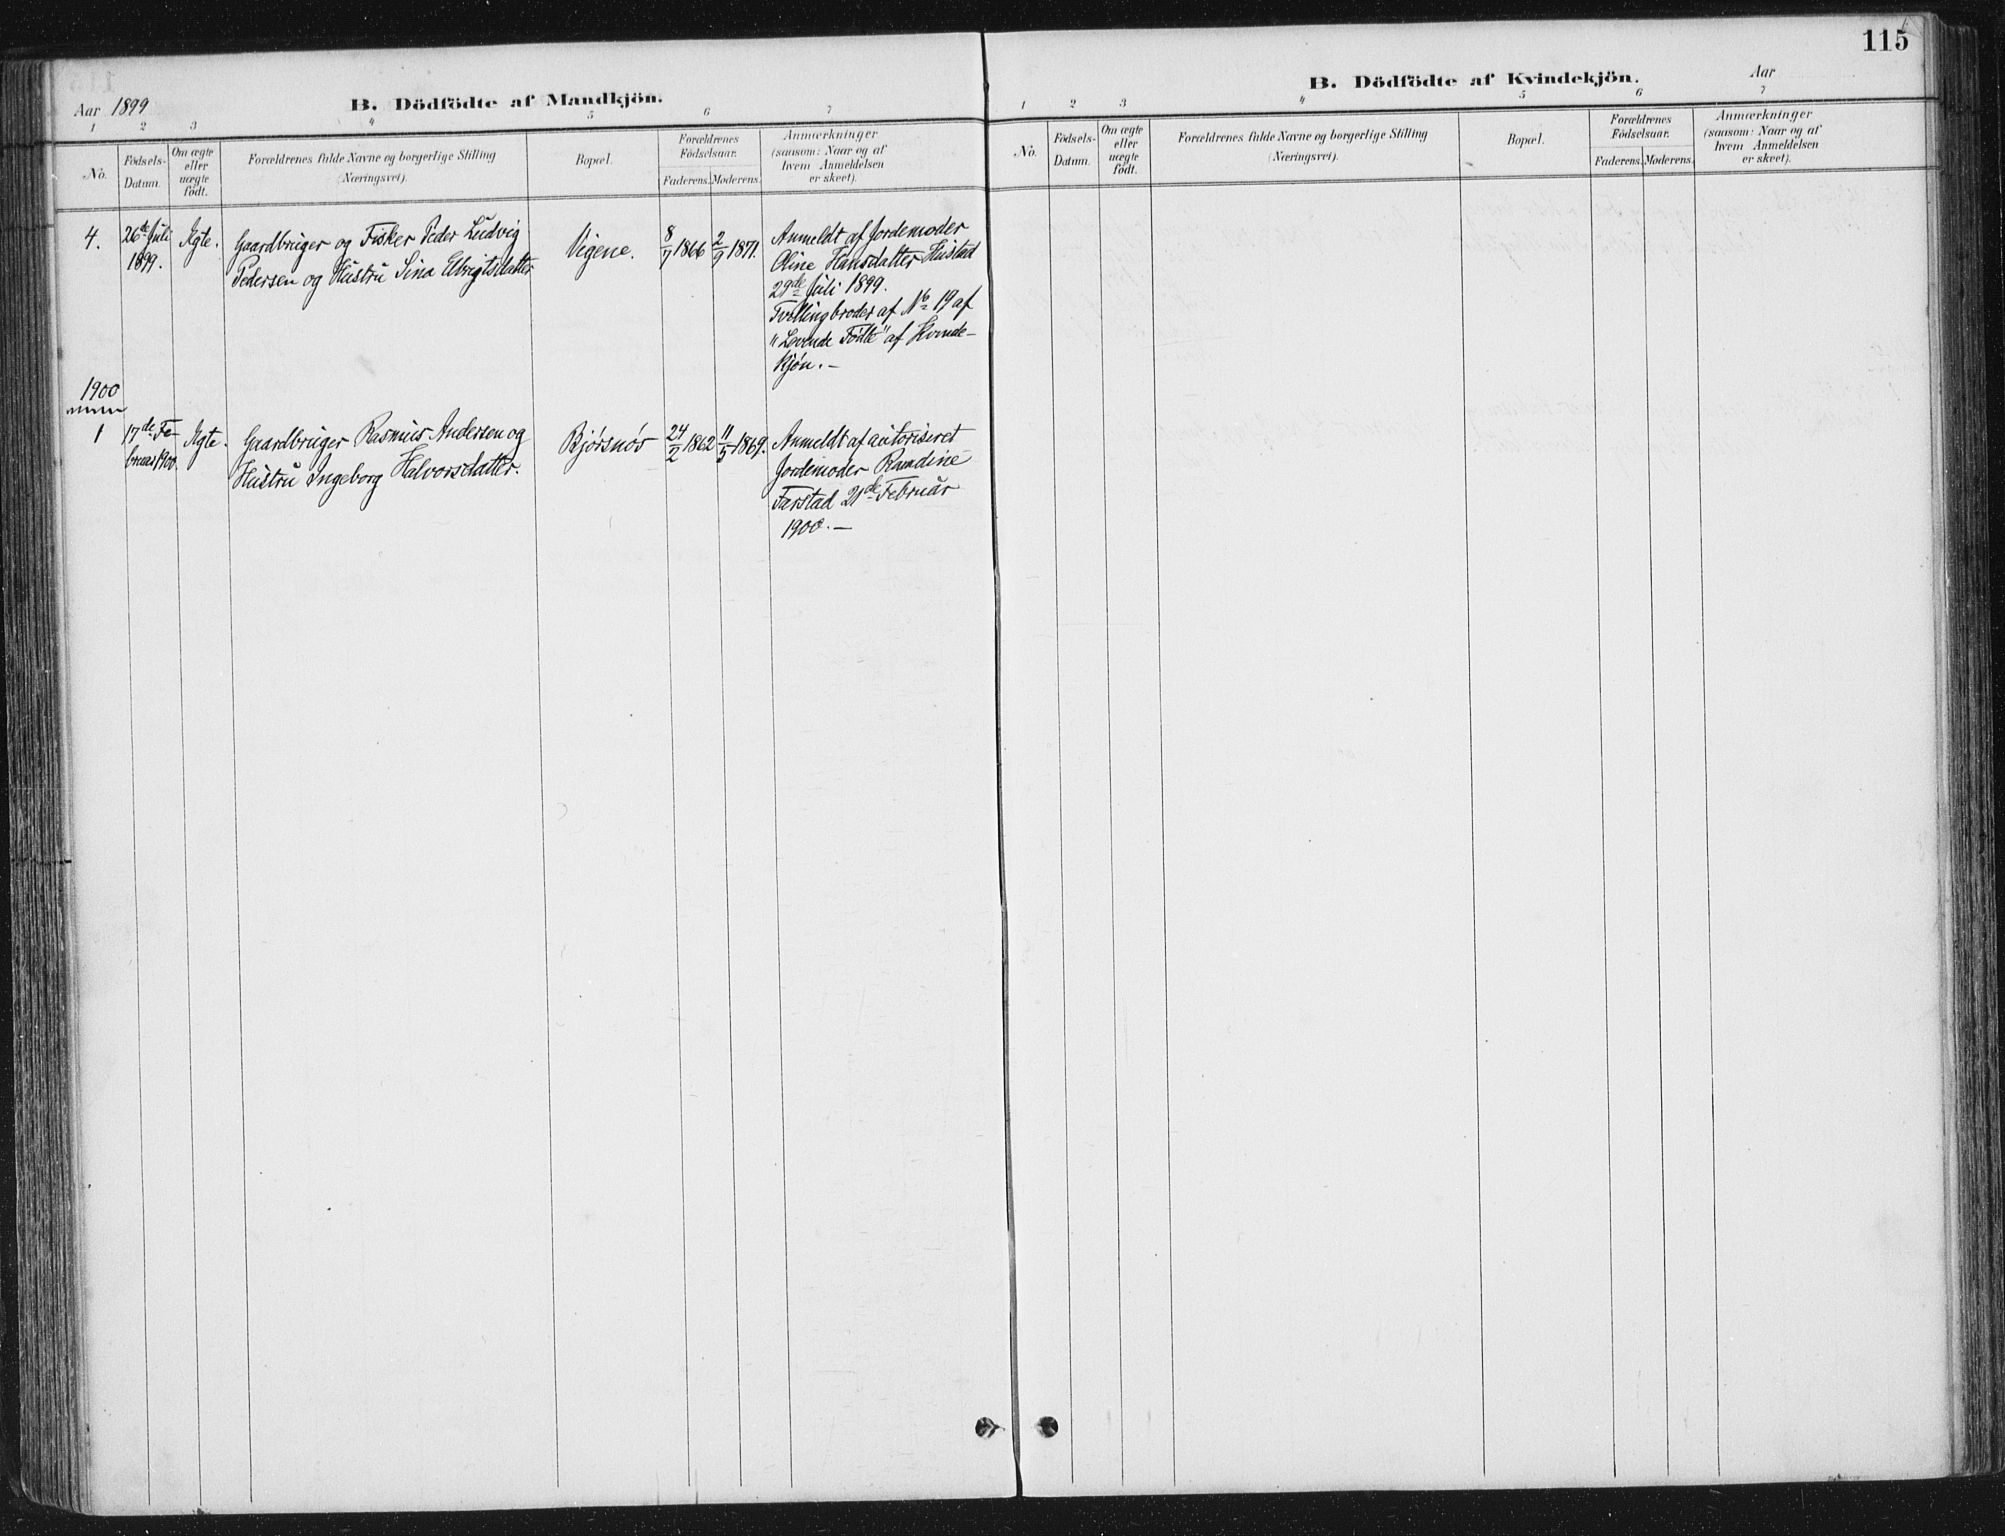 115
Aar 1899
B. Dödfödte af Mandkjön.
1 2 3 4 5 6 7
No.
Födsels-
Datum.
Om ægte
eller
uægte
födt.
Forældrenes fulde Navne og borgerlige Stilling
(Næringsvei).
Bopæl.
Forældrenes
Födselsaar.
Faderens. Moderens.
Anmærkninger
(saasom: Naar og af
hvem Anmeldelsen
er skeet).
4.
26de Juli
1899.
Ægte.
Gaardbruger og Fisker Peder Ludvig
Pedersen og Hustru Sina Elbrigtsdatter
Vigene.
8/7 1866
2/9 1871.
Anmeldt af Jordemoder
Oline Hansdatter Hustad
29de Juli 1899.
Tvillingbroder af No 19 af
"Levende Födte" af Kvinde-
kjön. –
1900
1
17de Fe-
bruar 1900.
Ægte.
Gaardbruger Rasmus Andersen og
Hustru Ingeborg Halvorsdatter.
Bjørsnøs
24/2 1862
11/5 1869.
Anmeldt af autoriseret
Jordemoder Ramdine
Farstad 21de Februar
1900. –
B. Dödfödte af Kvindekjön.
Aar
1 2 3 4 5 6 7
No.
Födsels-
Datum.
Om ægte
eller
uægte
födt.
Forældrenes fulde Navne og borgerlige Stilling
(Næringsvei).
Bopæl.
Forældrenes
Födselsaar.
Faderens. Moderens.
Anmærkninger
(saasom: Naar og af
hvem Anmeldelsen
er skeet).